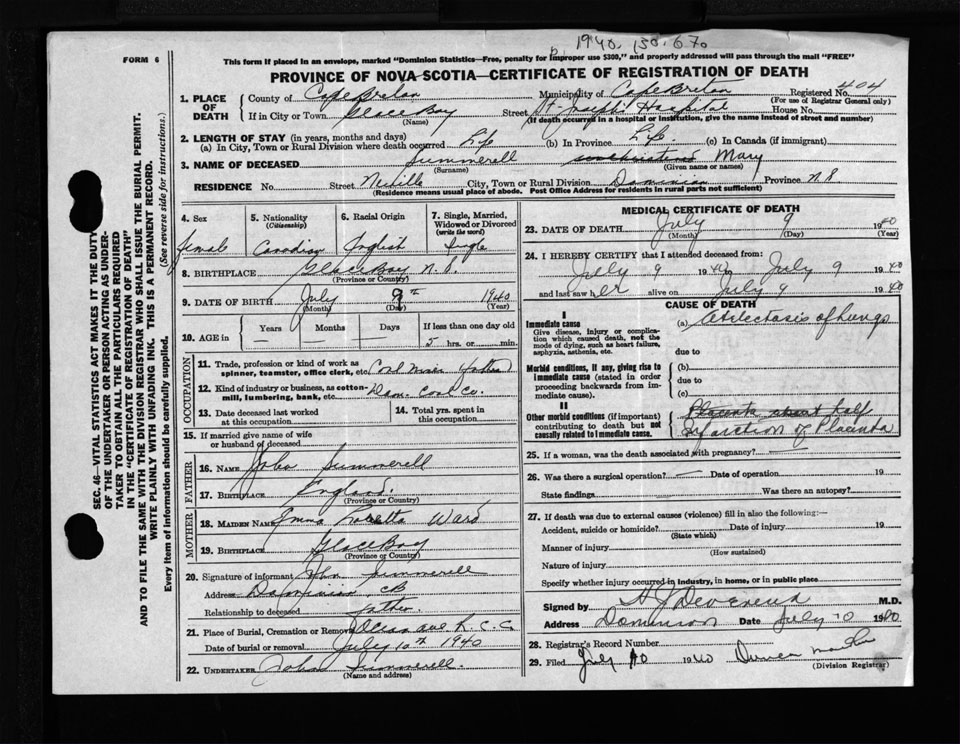 1940. 130.670
FORM 6
This form if placed in an envelope, marked "Dominion Statistics—Free, penalty for improper use $300," and properly addressed will pass through the mail "FREE"
PROVINCE OF NOVA SCOTIA—CERTIFICATE OF REGISTRATION OF DEATH
SEC. 46—VITAL STATISTICS ACT MAKES IT THE DUTY
OF THE UNDERTAKER OR PERSON ACTING AS UNDER-
TAKER TO OBTAIN ALL THE PARTICULARS REQUIRED
IN THE "CERTIFICATE OF REGISTRATION OF DEATH"
AND TO FILE THE SAME WITH THE DIVISION REGISTRAR WHO SHALL ISSUE THE BURIAL PERMIT.
WRITE PLAINLY WITH UNFADING INK. THIS IS A PERMANENT RECORD.
Every item of information should be carefully supplied. (See reverse side for instructions.)
1. PLACE OF DEATH
County of Cape Breton Municipality of Cape Breton Registered No. 404
(For use of Registrar General only)
If in City or Town Glace Bay Street St. Joseph's Hospital House No.
(Name) (If death occurred in a hospital or institution, give the name instead of street and number)
2. LENGTH OF STAY (in years, months and days)
(a) In City, Town or Rural Division where death occurred Life (b) In Province Life (c) In Canada (if immigrant)
3. NAME OF DECEASED Summerell Mary
(Surname) (Given name or names)
RESIDENCE No. Street Neville City, Town or Rural Division Dominion Province N.S
(Residence means usual place of abode. Post Office Address for residents in rural parts not sufficient)
4. Sex 5. Nationality (Citizenship) 6. Racial Origin 7. Single, Married, Widowed or Divorced (write the word)
female Canadian English Single
8. BIRTHPLACE Glace Bay N.S.
(Province or Country)
9. DATE OF BIRTH July 9th 1940
(Month) (Day) (Year)
10. AGE in Years Months Days If less than one day old
— — — 5 hrs. or min.
OCCUPATION
11. Trade, profession or kind of work as spinner, teamster, office clerk, etc. Coal Miner (father)
12. Kind of industry or business, as cotton-mill, lumbering, bank, etc Dom. Coal Co.
13. Date deceased last worked at this occupation
14. Total yrs. spent in this occupation
15. If married give name of wife or husband of deceased
FATHER
16. NAME John Summerell
17. BIRTHPLACE England.
(Province or Country)
MOTHER
18. MAIDEN NAME Emma Rosetta Ward
19. BIRTHPLACE Glace Bay
(Province or Country)
20. Signature of informant John Summerell
Address Dominion CB
Relationship to deceased father.
21. Place of Burial, Cremation or Removal ave R.C.C
Date of burial or removal July 10th 1940
22. UNDERTAKER John Summerell.
(Name and address)
MEDICAL CERTIFICATE OF DEATH
23. DATE OF DEATH July 9 1940
(Month) (Day) (Year)
24. I HEREBY CERTIFY that I attended deceased from:
July 9 1940 July 9 1940
and last saw her alive on July 9 1940
CAUSE OF DEATH
I
Immediate cause (a) Atilectasis of Lungs
Give disease, injury or complication which caused death, not the mode of dying, such as heart failure, asphyxia, asthenia, etc.
due to
Morbid conditions, if any, giving rise to immediate cause (stated in order proceeding backwards from immediate cause).
(b)
due to
(c)
II
Other morbid conditions (if important) contributing to death but not causally related to immediate cause.
Placenta about half
Infarction of Placenta
25. If a woman, was the death associated with pregnancy?
26. Was there a surgical operation? — Date of operation 19
State findings Was there an autopsy?
27. If death was due to external causes (violence) fill in also the following:—
Accident, suicide or homicide? Date of injury 19
(State which)
Manner of injury
(How sustained)
Nature of injury
Specify whether injury occurred in industry, in home, or in public place
Signed by H J Devereux M.D.
Address Dominion Date July 10 1940
28. Registrar's Record Number
29. Filed July 10 1940 Duncan
(Division Registrar)